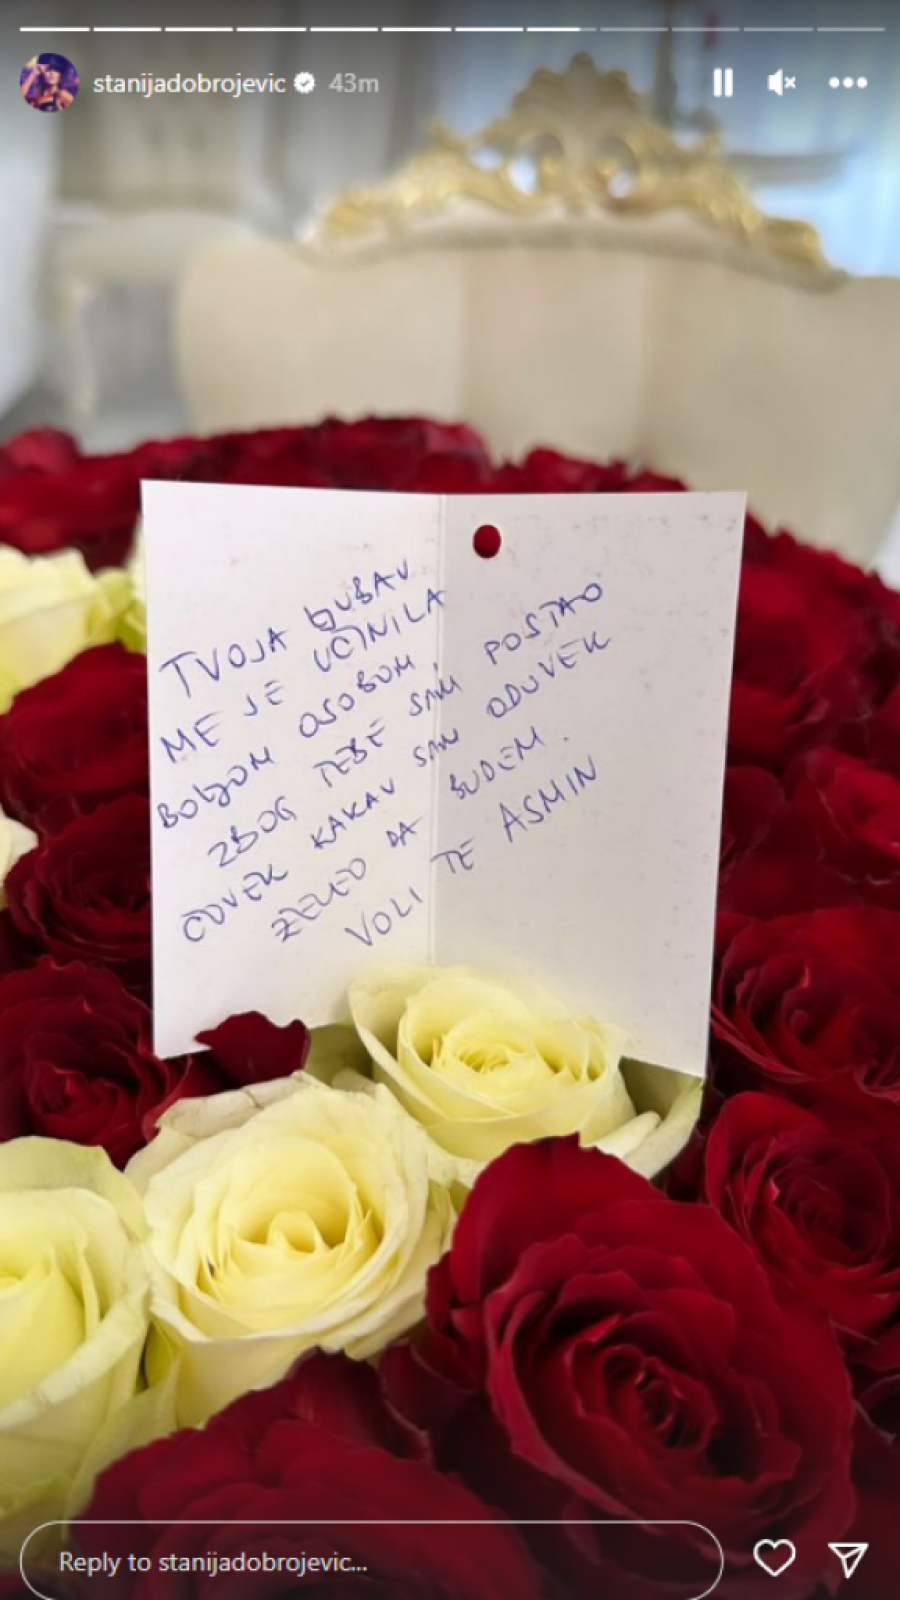 stanijadobrojevic 43m
TVOJA LJUBAV
ME JE UČINILA
BOLJOM OSOBOM,
ZBOG TEBE SAM POSTAO
ČOVEK KAKAV SAM ODUVEK
ŽELEO DA BUDEM.
VOLI TE ASMIN
Reply to stanijadobrojevic...